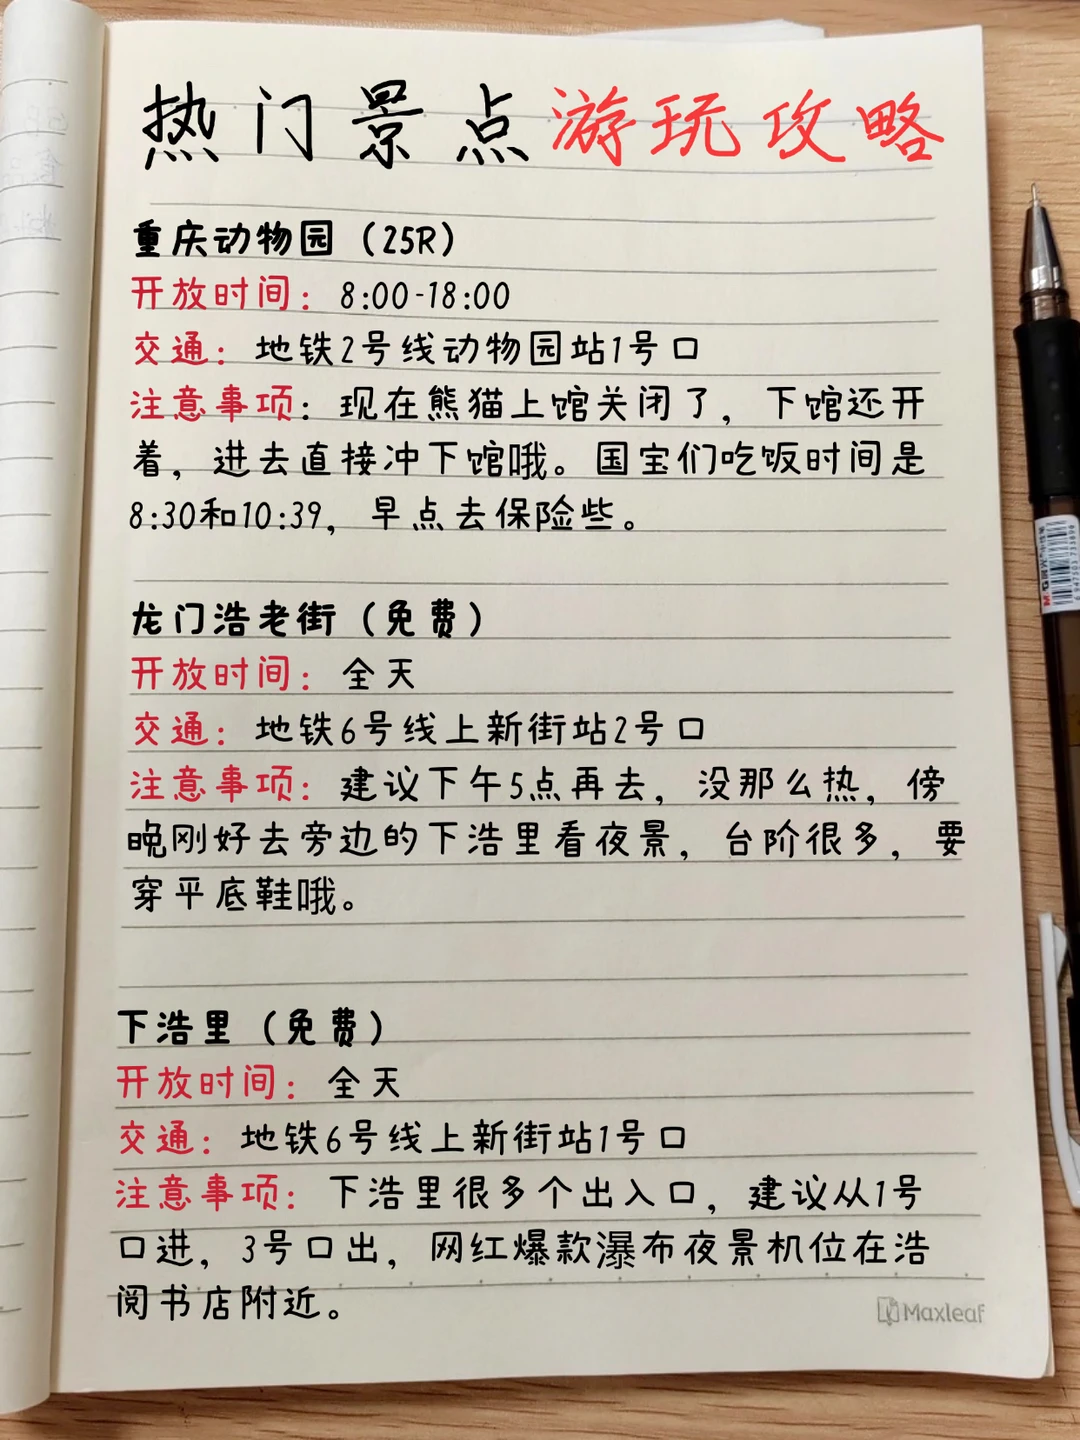 热门景点游玩攻略
重庆动物园（25R）
开放时间：8:00-18:00
交通：地铁2号线动物园站1号口
注意事项：现在熊猫上馆关闭了，下馆还开
着，进去直接冲下馆哦。国宝们吃饭时间是
8:30和10:39，早点去保险些。
龙门浩老街（免费）
开放时间：全天
交通：地铁6号线上新街站2号口
注意事项：建议下午5点再去，没那么热，傍
晚刚好去旁边的下浩里看夜景，台阶很多，要
穿平底鞋哦。
下浩里（免费）
开放时间：全天
交通：地铁6号线上新街站1号口
注意事项：下浩里很多个出入口，建议从1号
口进，3号口出，网红爆款瀑布夜景机位在浩
阅书店附近。
Maxleaf
M&G